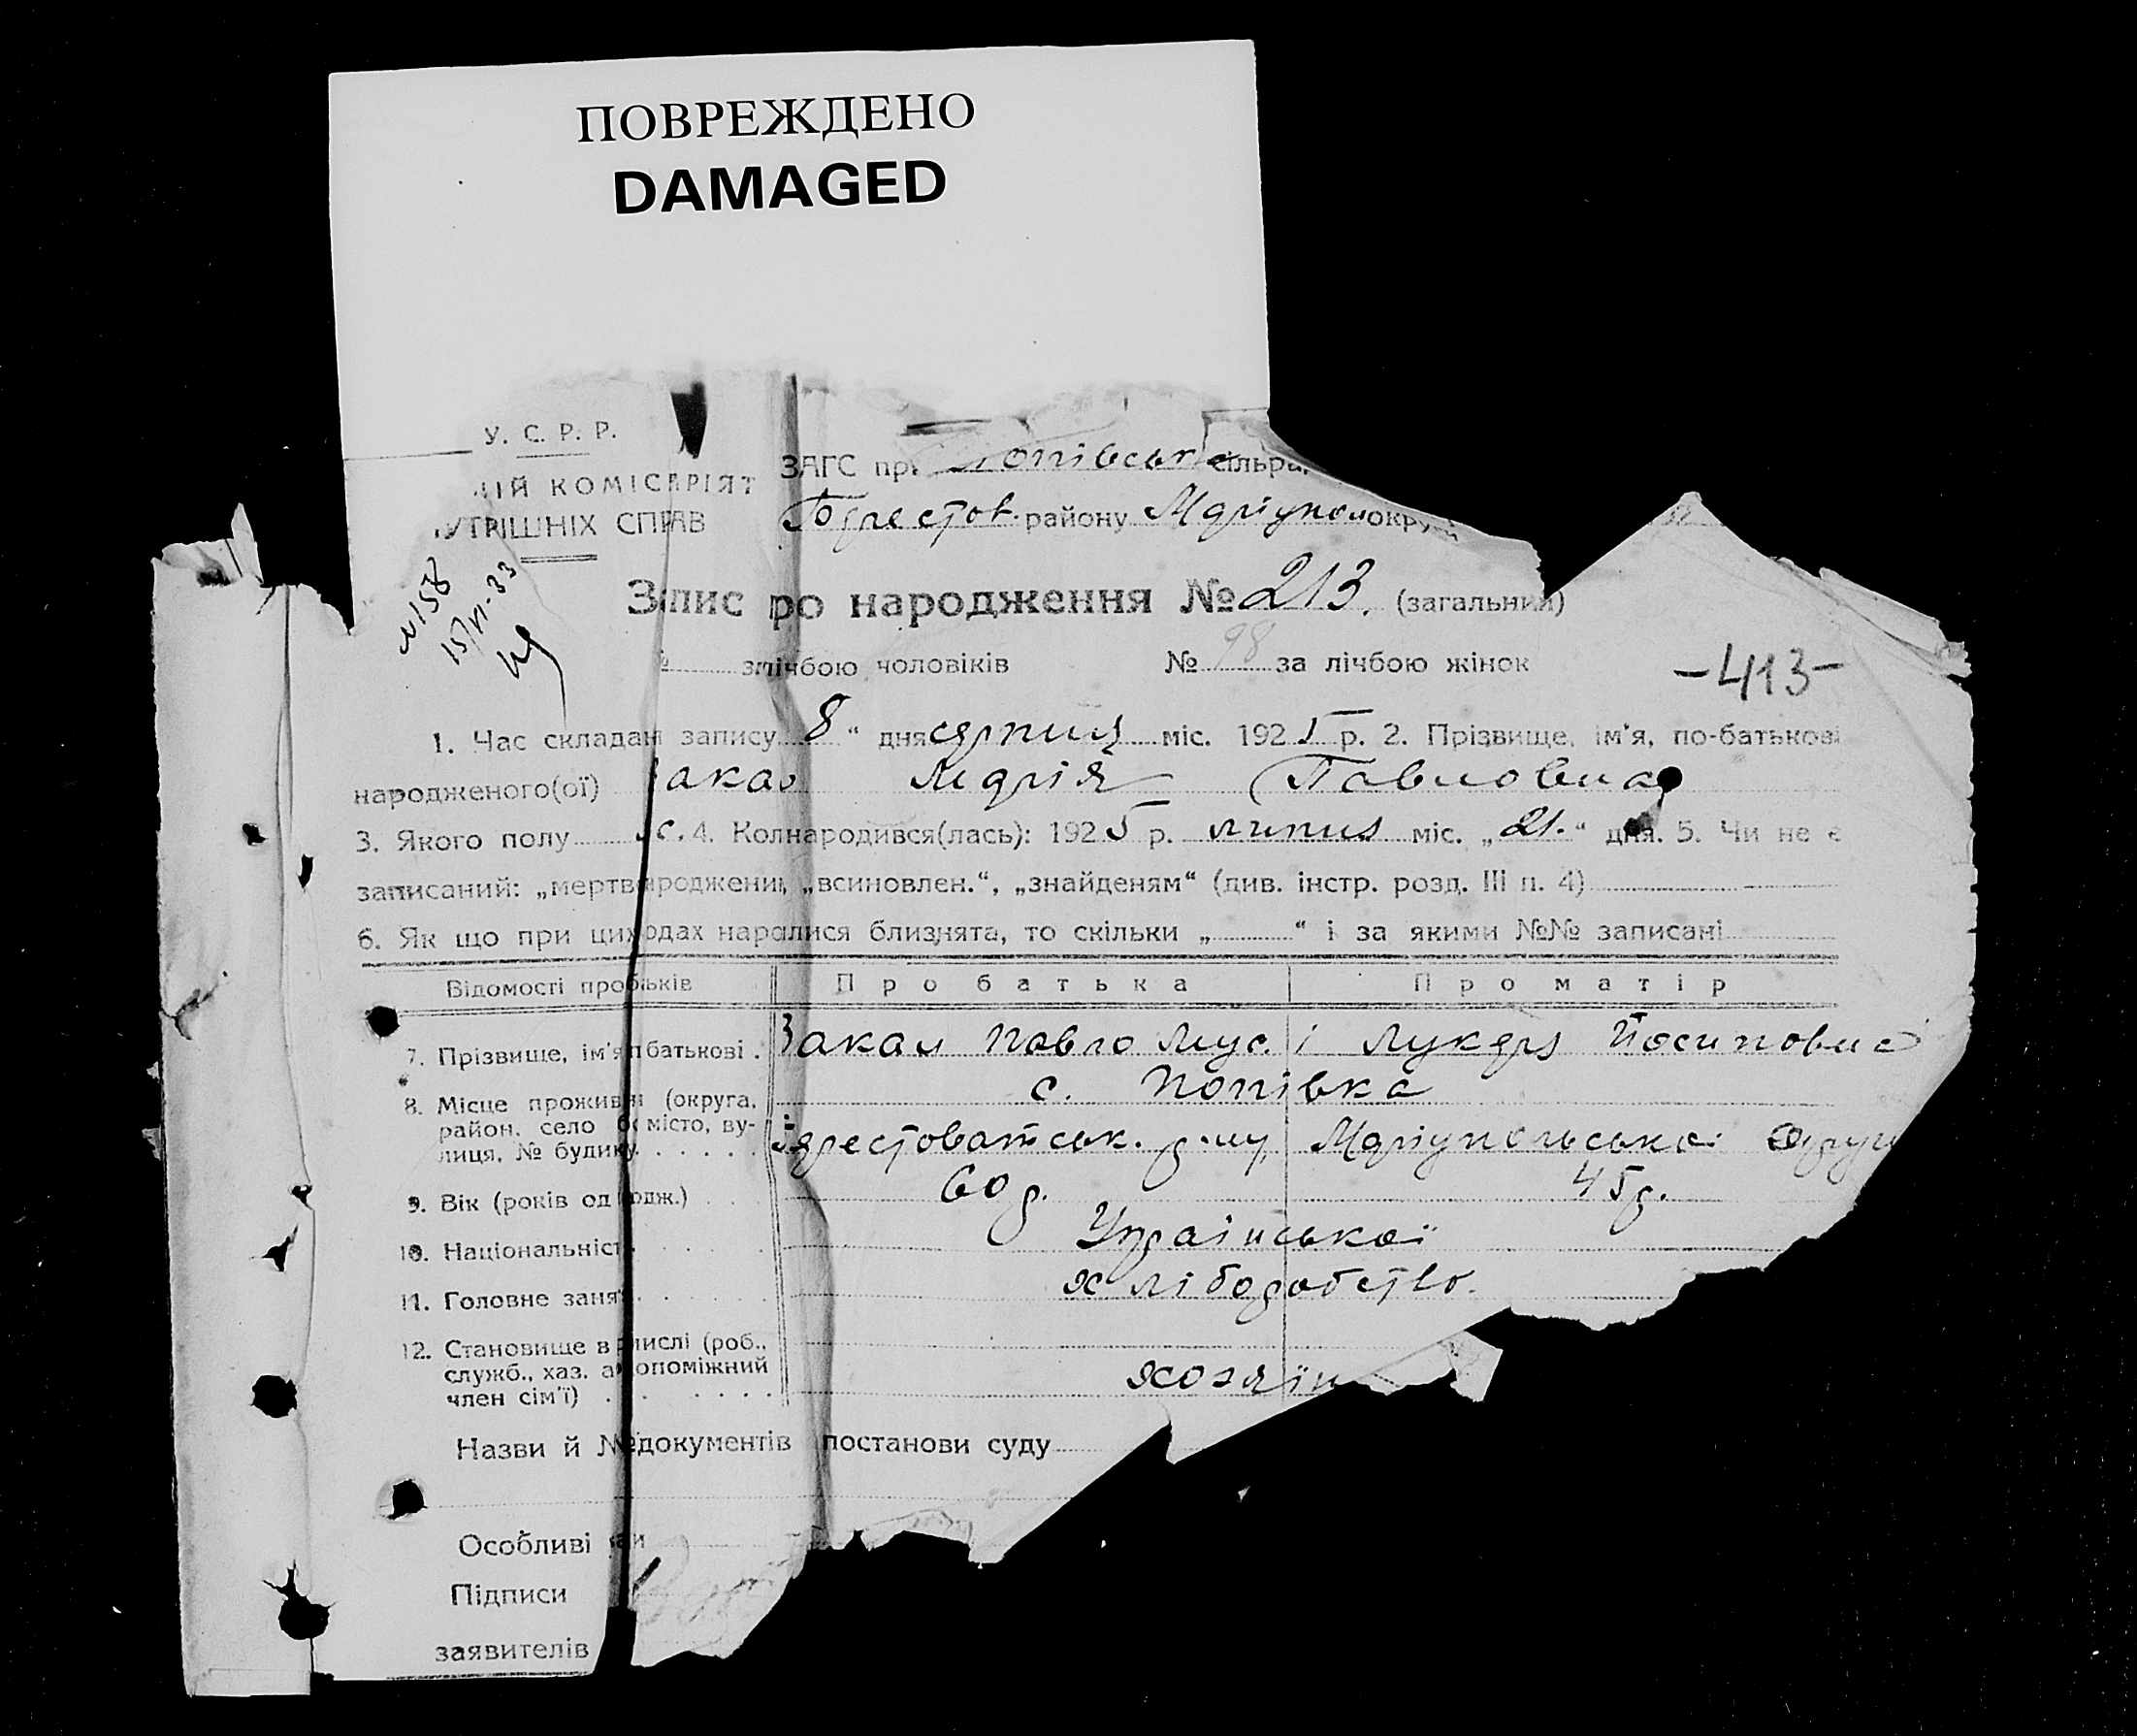 ПОВРЕЖДЕНО
DAMAGED
У. С. Р. Р.
КОМІСАРІЯТ
СПРАВ
ЗАГС при Попівськ сільра
Берестов. району Маріупол окру
№158
15/VI-33
Запис про народження № 213. (загальний)
за лічбою чоловіків № 98 за лічбою жінок
-413-
1. Час складан запису 8 " дня серпня міс. 1925 р. 2. Прізвище, ім'я, по-батькові
народженого(ої) Закал Марія Павловна
3. Якого полу ж. 4. Кол народився(лась): 1925 р. липня міс. „21." дня. 5. Чи не є
записаний: „мертв народжени, „всиновлен.", „знайденям" (див. інстр. розд. III п. 4)
6. Як що при ци родах народилися близнята, то скільки „ " і за якими №№ записані
Відомості про батьків Про батька Про матір
7. Прізвище, ім'я батькові . Закал Павло Мус. і Лукеря Йосиповна
с. Попівка
8. Місце прожив (округа,
район, село місто, ву-
лиця, № будинку Берестоватськ. р-ну, Маріупольської округи
9. Вік (років од родж.) 60 р. 45 р.
10. Національніст Української
11. Головне заня хліборобство.
12. Становище в мислі (роб.,
служб., хаз. а допоміжний
член сім'ї) хозяїн
Назви й № документів постанови суду
Особливі
Підписи
заявителів